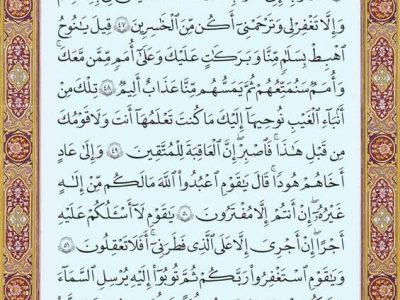 وَإِلَّا تَغْفِرْ لِى وَتَرْحَمْنِىٓ أَكُن مِّنَ ٱلْخَٰسِرِينَ ٤٧ قِيلَ يَٰنُوحُ
ٱهْبِطْ بِسَلَٰمٍ مِّنَّا وَبَرَكَٰتٍ عَلَيْكَ وَعَلَىٰٓ أُمَمٍ مِّمَّن مَّعَكَ ۚ
وَأُمَمٌ سَنُمَتِّعُهُمْ ثُمَّ يَمَسُّهُم مِّنَّا عَذَابٌ أَلِيمٌ ٤٨ تِلْكَ مِنْ
أَنۢبَآءِ ٱلْغَيْبِ نُوحِيهَآ إِلَيْكَ ۖ مَا كُنتَ تَعْلَمُهَآ أَنتَ وَلَا قَوْمُكَ
مِن قَبْلِ هَٰذَا ۖ فَٱصْبِرْ ۖ إِنَّ ٱلْعَٰقِبَةَ لِلْمُتَّقِينَ ٤٩ وَإِلَىٰ عَادٍ
أَخَاهُمْ هُودًا ۚ قَالَ يَٰقَوْمِ ٱعْبُدُوا۟ ٱللَّهَ مَا لَكُم مِّنْ إِلَٰهٍ
غَيْرُهُۥٓ ۖ إِنْ أَنتُمْ إِلَّا مُفْتَرُونَ ٥٠ يَٰقَوْمِ لَآ أَسْـَٔلُكُمْ عَلَيْهِ
أَجْرًا ۖ إِنْ أَجْرِىَ إِلَّا عَلَى ٱلَّذِى فَطَرَنِىٓ ۚ أَفَلَا تَعْقِلُونَ ٥١
وَيَٰقَوْمِ ٱسْتَغْفِرُوا۟ رَبَّكُمْ ثُمَّ تُوبُوٓا۟ إِلَيْهِ يُرْسِلِ ٱلسَّمَآءَ